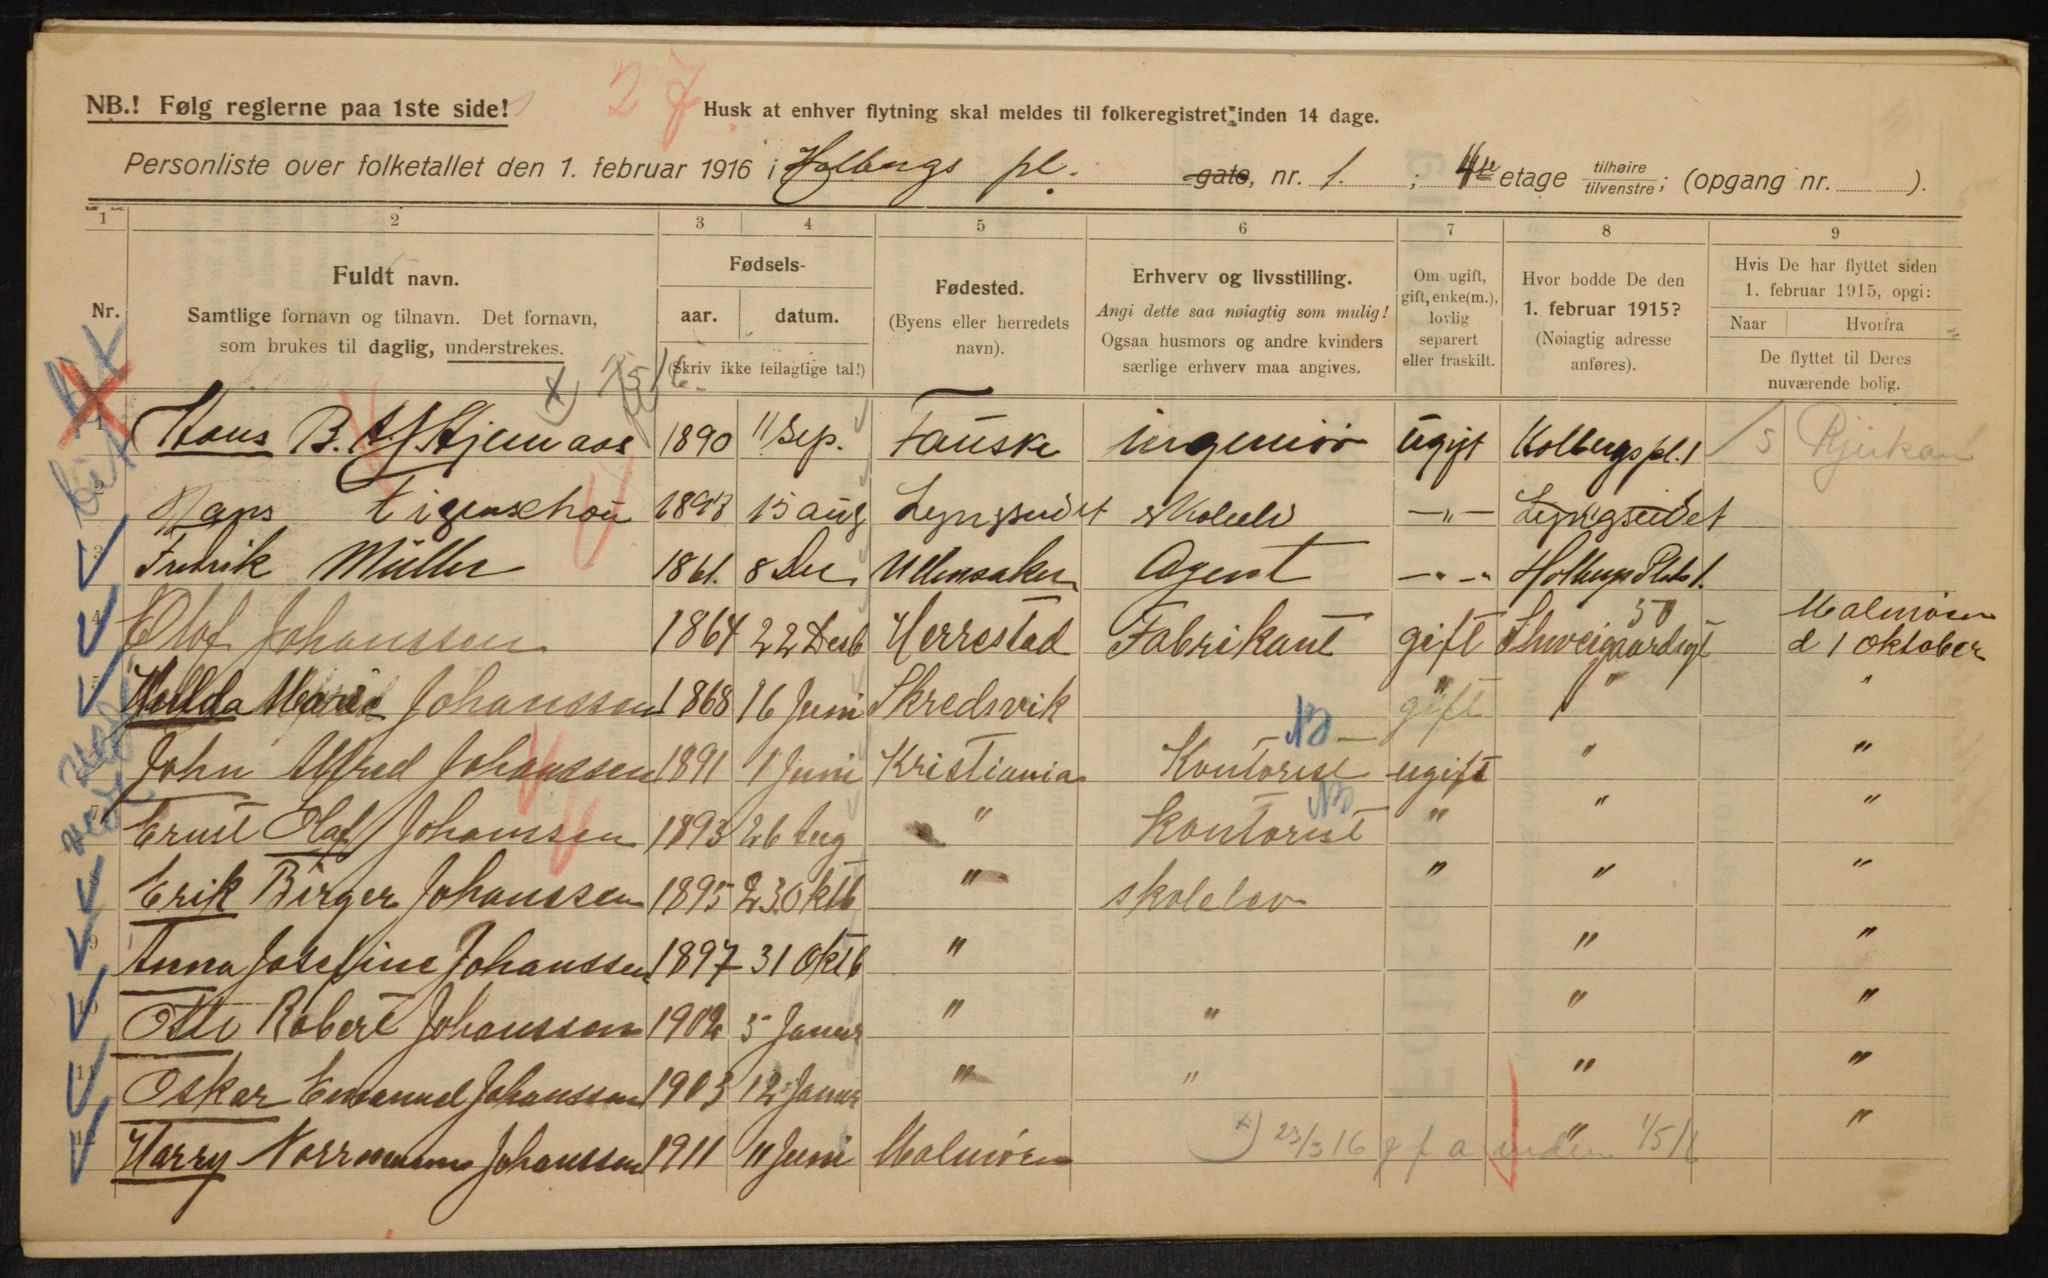 27
NB.! Følg reglerne paa 1ste side!
Husk at enhver flytning skal meldes til folkeregistret inden 14 dage.
Personliste over folketallet den 1. februar 1916 i Holbergs pl. gate, nr. 1. ; 4de etage tilhøire/tilvenstre; (opgang nr. ).
1 2 3 4 5 6 7 8 9
Nr.
Fuldt navn.
Samtlige fornavn og tilnavn. Det fornavn,
som brukes til daglig, understrekes.
Fødsels-
aar. datum.
(Skriv ikke feilagtige tal!)
Fødested.
(Byens eller herredets
navn).
Erhverv og livsstilling.
Angi dette saa nøiagtig som mulig!
Ogsaa husmors og andre kvinders
særlige erhverv maa angives.
Om ugift,
gift, enke(m.),
lovlig
separert
eller fraskilt.
Hvor bodde De den
1. februar 1915?
(Nøiagtig adresse
anføres).
Hvis De har flyttet siden
1. februar 1915, opgi:
Naar Hvorfra
De flyttet til Deres
nuværende bolig.
1 Hans B. 1890 11 Sep. Fauske ingeniør ugift Holbergs pl. 1 Rjukan
2 Hans Eigenschou 15 aug Lyngseidet skoleelev —„— Lyngseidet
3 Fredrik Müller 1861. 8 Dec Ullensaker Agent —„— Holbergs Plads 1.
4 Olof Johanssen 1864 22 Desb Herrestad Fabrikant gift Shweigaardsgt 50 Malmøen d 1 Oktober
5 Hullda Marie Johanssen 1868 16 Juni Skredsvik gift " "
John Alfred Johanssen 1891 1 Juni Kristiania Kontorist ugift " "
7 Ernst Olaf Johanssen 1893 26 Aug " Kontorist " " "
8 Erik Birger Johanssen 1895 23 Oktb " skolelev " " "
9 Anna Josefine Johanssen 1897 31 Oktb " " "
10 Otto Robert Johanssen 1902 5 Januar " " " "
11 Oskar Emanuel Johanssen 1903 12 Januar " " " "
12 Harry Norrmann Johanssen 1911 11 Juni Malmøen " "
x) 23/3 16 inden 1/5 16